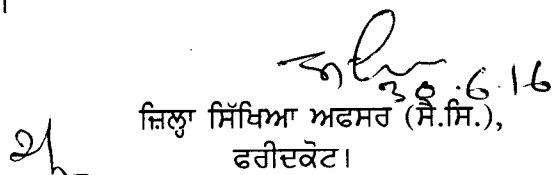 30.6.16
ਜ਼ਿਲ੍ਹਾ ਸਿੱਖਿਆ ਅਫਸਰ (ਸੈ.ਸਿ.),
ਫਰੀਦਕੋਟ।